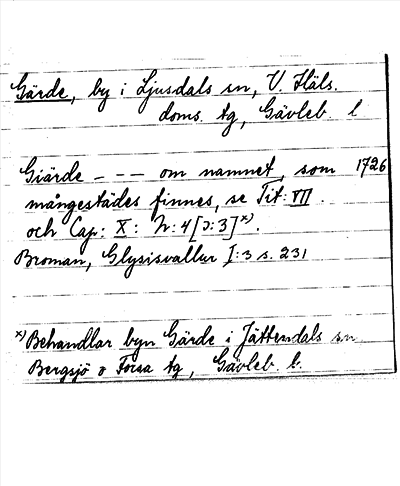 Gärde, by i Ljusdals sn, V. Häls.
doms. tg, Gävleb. l
Giärde - - - om namnet, som 1726
mångestädes finnes, se Tit: VII.
och Cap: X: N: 4 [ɔ: 3] x).
Broman, Glysisvallur I:3 s. 231
x) Behandlar byn Gärde i Jättendals sn
Bergsjö o Forsa tg, Gävleb. l.